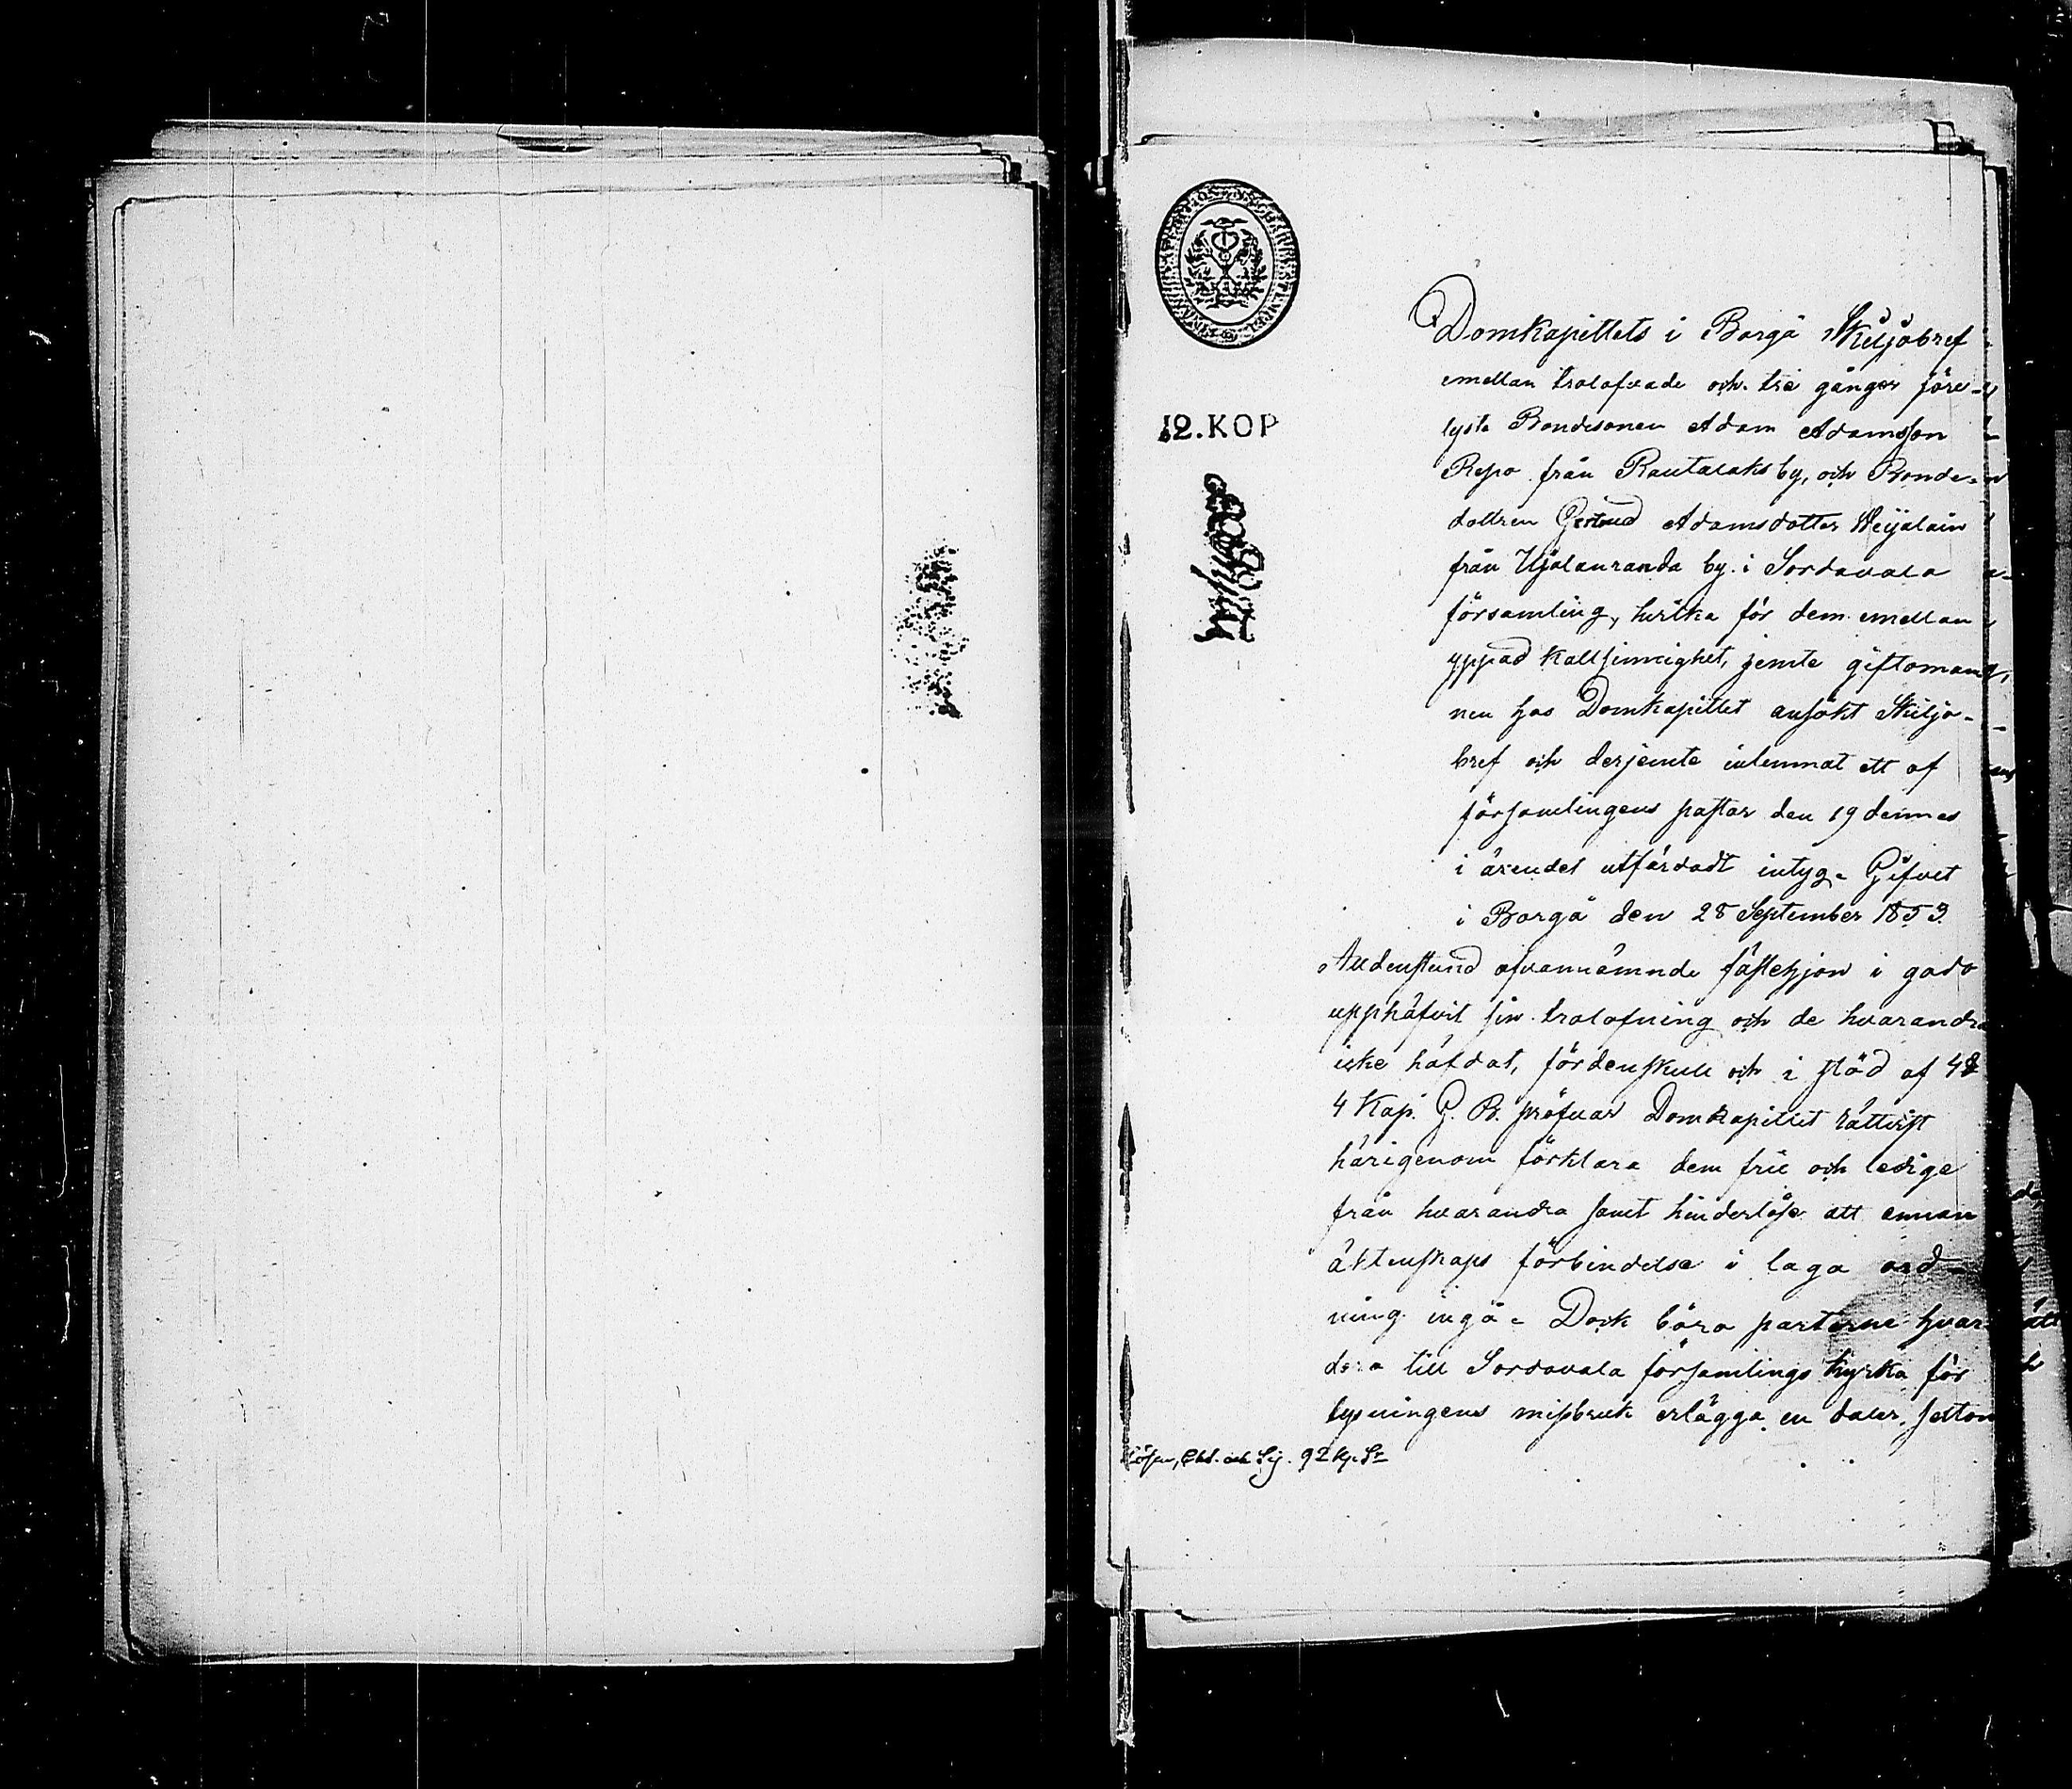 12.KOP
Domkapittlets i Borgå Skiljobref
emellan trolofvade och tre gånger före-
lyste Bondesonen Adam Adamsson
Repo från Rautalaks by, och Bonde-
dottren Gertrud Adamsdotter
från by i Sordavala
församling, hvilka för dem emellan
yppad kallsinnighet, jemte giftoman-
nen hos Domkapitlet ansökt Skiljo-
bref och derjemte inlemnat ett af
församlingens pastor den 19 dennes
i ärendet utfärdadt intyg. Gifvet
i Borgå den 28 September 1853.
Alldenstund ofvannämnde fästehjon i godo
upphäfvit sin trolofning och de hvarandra
icke häfdat, fördenskull och i stöd af 4 §
4 Kap. G. B. pröfvar Domkapitlet rättvist
härigenom förklara dem frie och ledige
från hvarandra samt hinderlöse att annan
äktenskaps förbindelse i laga ord-
ning ingå. Dock böra parterne hvar-
dera till Sordavala församlings kyrka för
lysningens missbruk erlägga en daler sexton
Lösen, Chs. och Sig. 92 kp. Sr